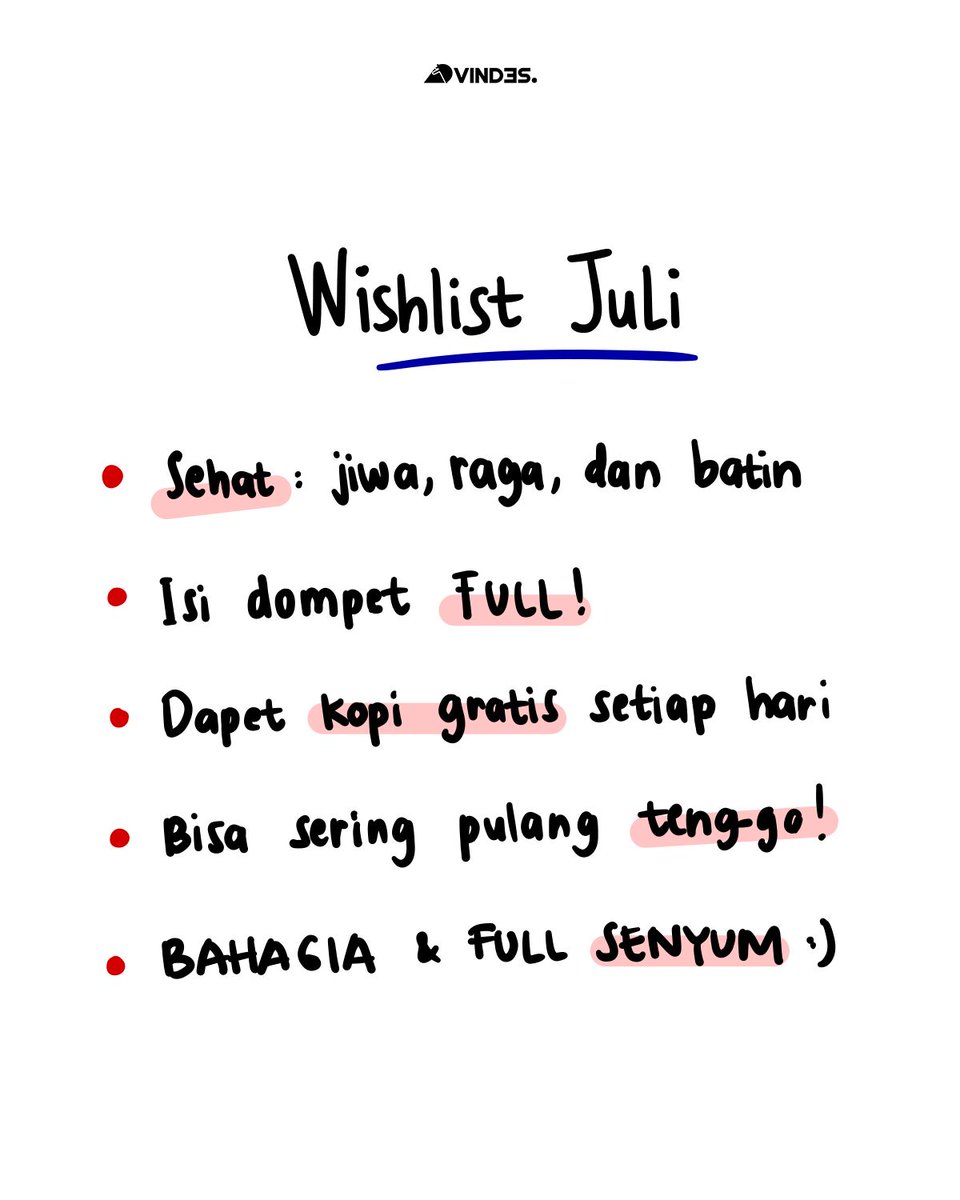 VINDES.
Wishlist Juli
Sehat : jiwa, raga, dan batin
Isi dompet FULL!
Dapet kopi gratis setiap hari
Bisa sering pulang teng-go!
BAHAGIA & FULL SENYUM :)